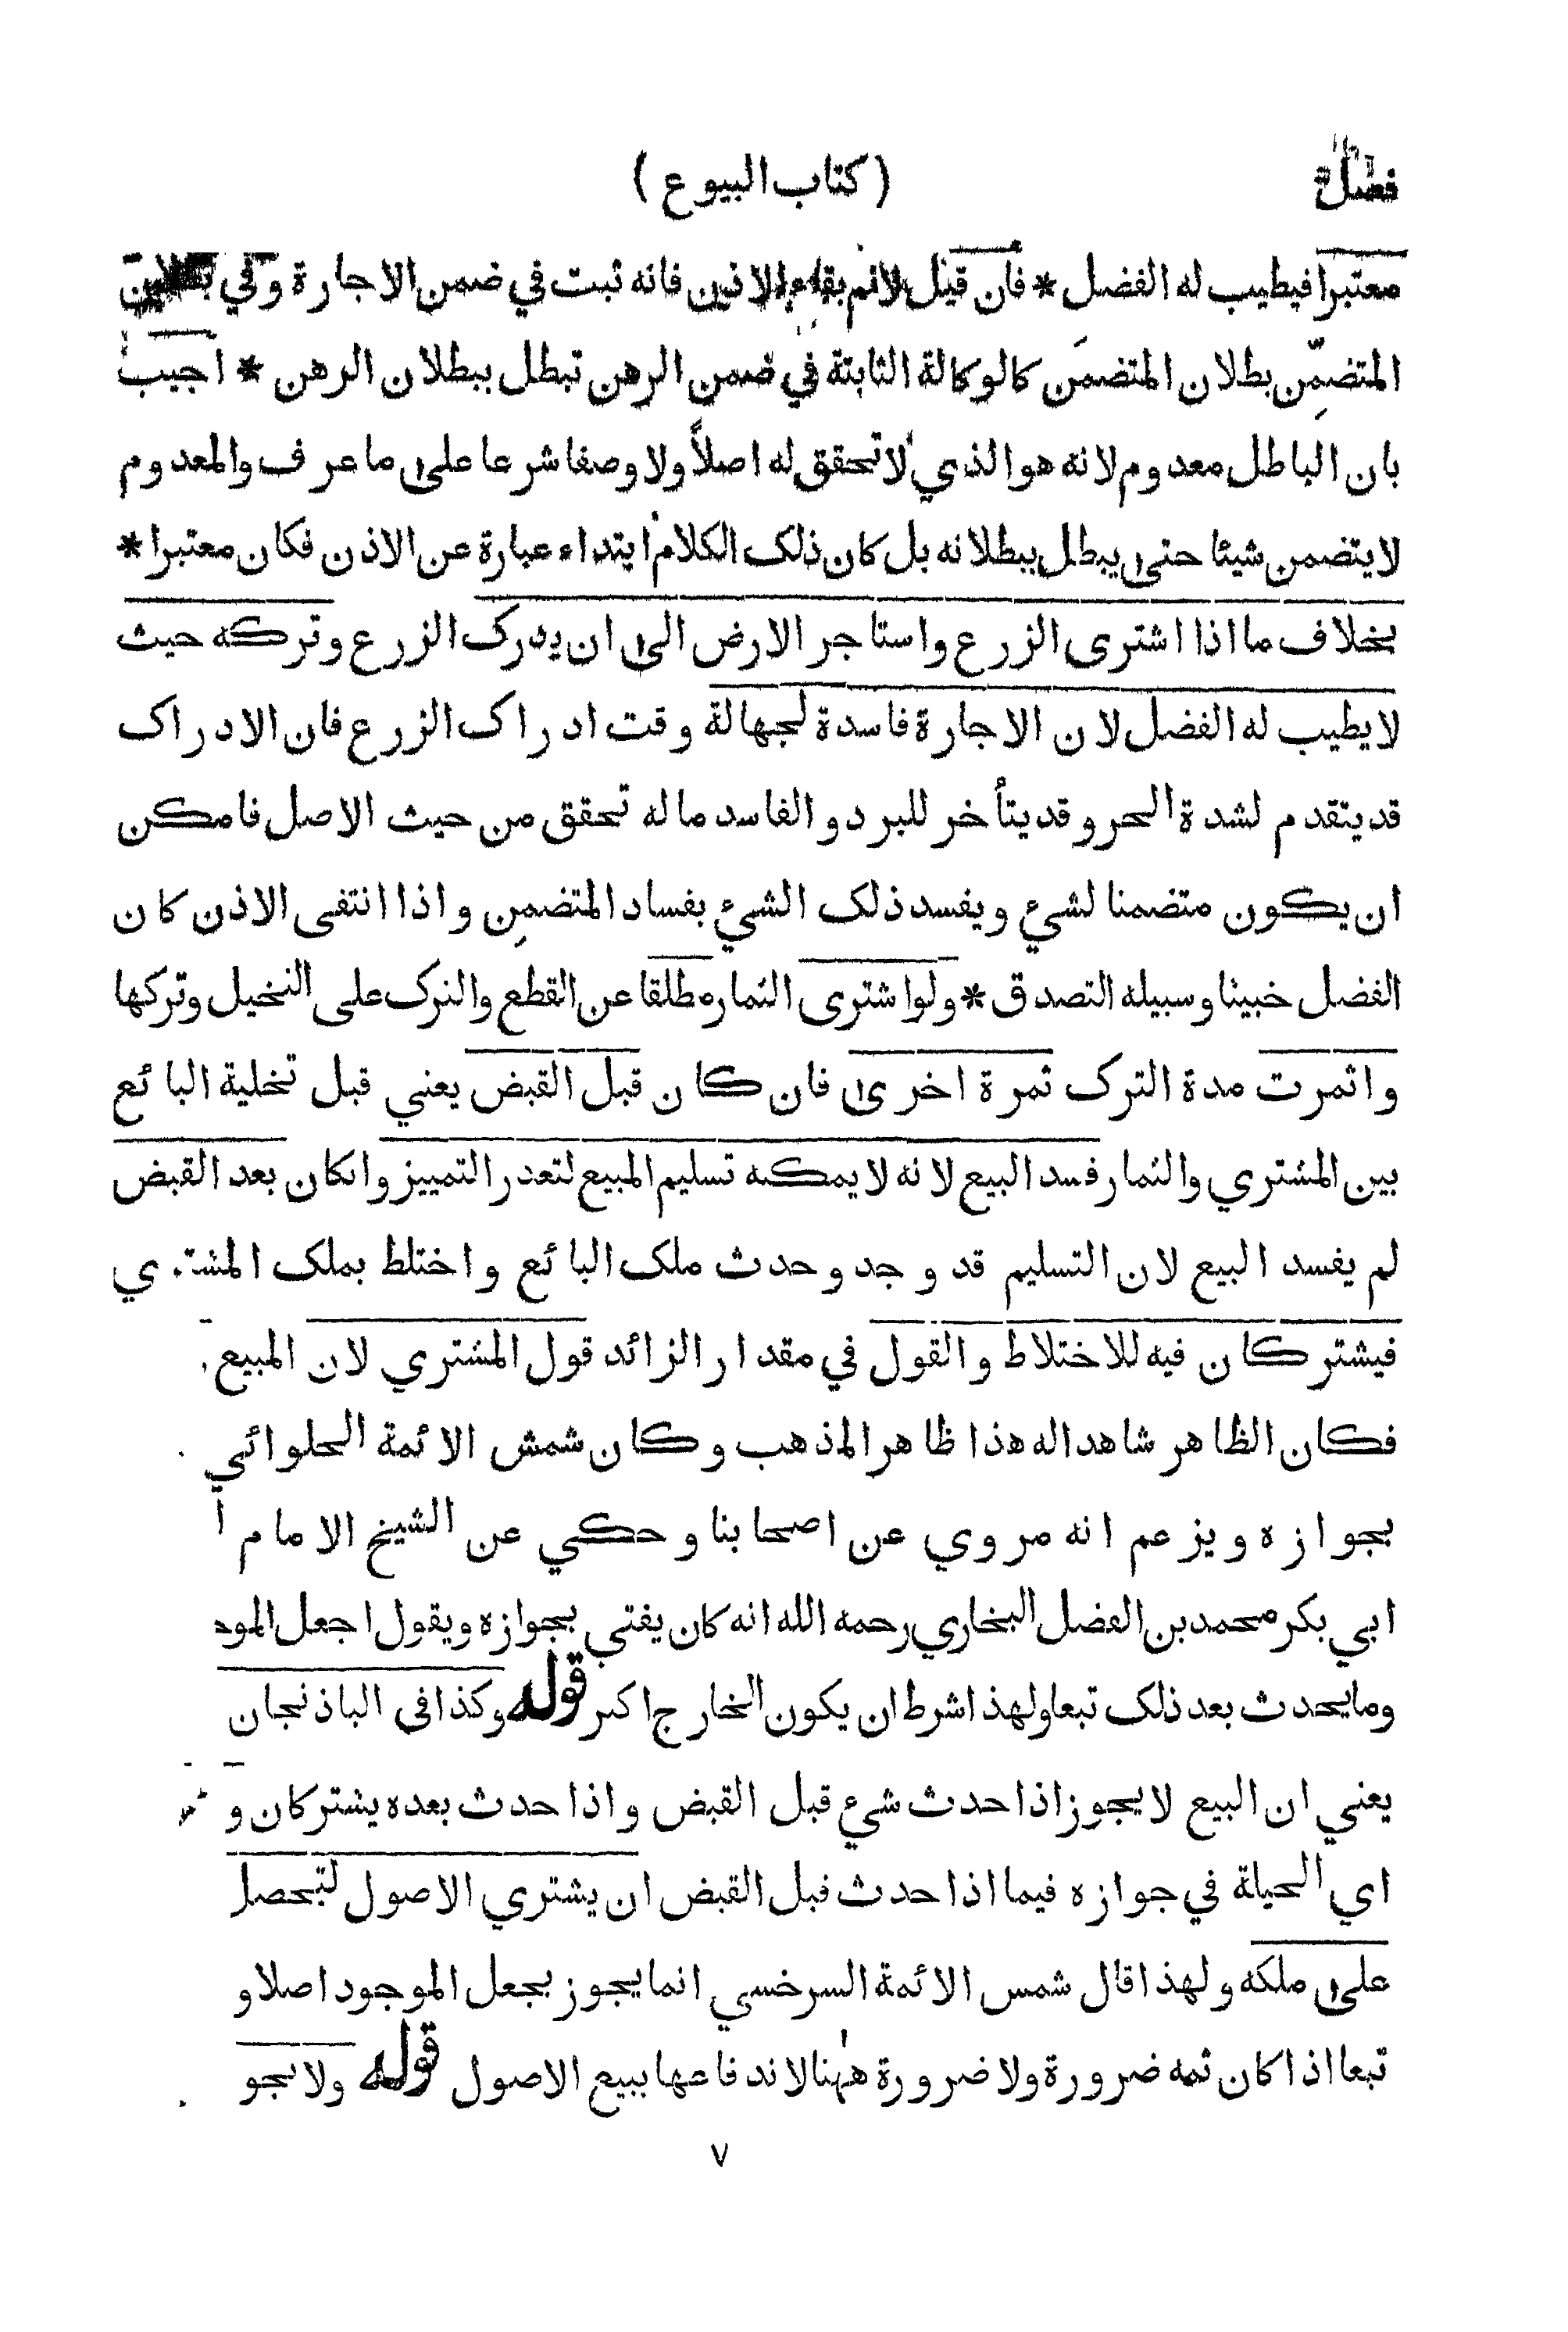 فصل
( كتاب البيوع )
معتبرا فيطيب له الفضل * فان قيل لانم بقاء الاذن فانه ثبت في ضمن الاجارة وفي بطلان
المتضمِّن بطلان المتضمَن كالوكالة الثابتة في ضمن الرهن تبطل ببطلان الرهن * اجيب
بان الباطل معدوم لانه هو الذي لا تحقق له اصلاً ولا وصفا شرعا على ما عرف والمعدوم
لا يتضمن شيئا حتى يبطل ببطلانه بل كان ذلك الكلام ابتداء عبارة عن الاذن فكان معتبرا *
بخلاف ما اذا اشترى الزرع واستاجر الارض الى ان يدرك الزرع وتركه حيث
لا يطيب له الفضل لان الاجارة فاسدة لجهالة وقت ادراك الزرع فان الادراك
قد يتقدم لشدة الحر وقد يتأخر للبرد والفاسد ماله تحقق من حيث الاصل فامكن
ان يكون متضمنا لشيء ويفسد ذلك الشيء بفساد المتضمِن واذا انتفى الاذن كان
الفضل خبيثا وسبيله التصدق * ولو اشترى الثمار مطلقا عن القطع والترك على النخيل وتركها
واثمرت مدة الترك ثمرة اخرى فان كان قبل القبض يعني قبل تخلية البائع
بين المشتري والثمار فسد البيع لانه لا يمكنه تسليم المبيع لتعذر التمييز وانكان بعد القبض
لم يفسد البيع لان التسليم قد وجد وحدث ملك البائع واختلط بملك المشتري
فيشتركان فيه للاختلاط والقول في مقدار الزائد قول المشتري لان المبيع
فكان الظاهر شاهدا له هذا ظاهر المذهب وكان شمش الائمة الحلوائي
بجوازه ويزعم انه مروي عن اصحابنا وحكي عن الشيخ الامام ا
ابي بكر محمد بن الفضل البخاري رحمه الله انه كان يفتي بجوازه ويقول اجعل المود
وما يحدث بعد ذلك تبعا ولهذا شرط ان يكون الخارج اكبر قوله وكذا في الباذنجان
يعني ان البيع لا يجوز اذا حدث شيء قبل القبض واذا حدث بعده يشتركان و
اي الحيلة في جوازه فيما اذا حدث قبل القبض ان يشتري الاصول لتحصل
على ملكه ولهذا قال شمس الائمة السرخسي انما يجوز بجعل الموجود اصلا و
تبعا اذا كان ثمه ضرورة ولا ضرورة ههنا لاندفاعها ببيع الاصول قوله ولا يجو
٧